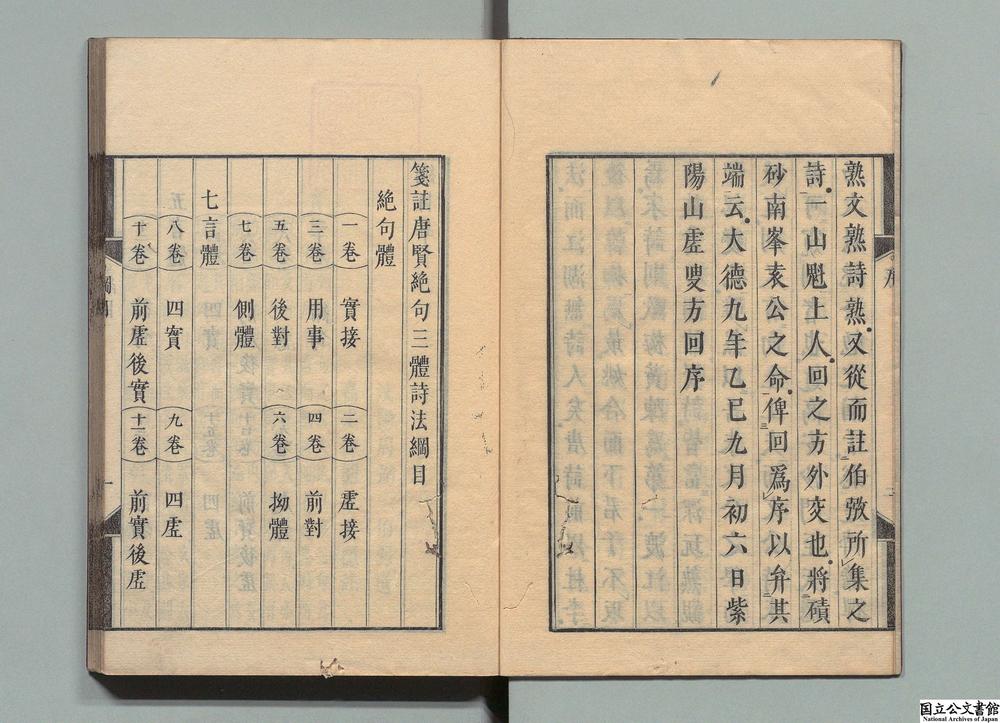 熟文熟詩熟又從而註伯弜所集之
詩一山魁上人回之方外交也將磧
砂南峯袁公之命俾回爲序以弁其
端云大德九年乙巳九月初六日紫
陽山虛叟方回序
箋註唐賢絕句三體詩法綱目
絕句體
一卷 實接 二卷 虛接
三卷 用事 四卷 前對
五卷 後對 六卷 拗體
七卷 側體
七言體
八卷 四實 九卷 四虛
十卷 前虛後實 十一卷 前實後虛
国立公文書館
National Archives of Japan